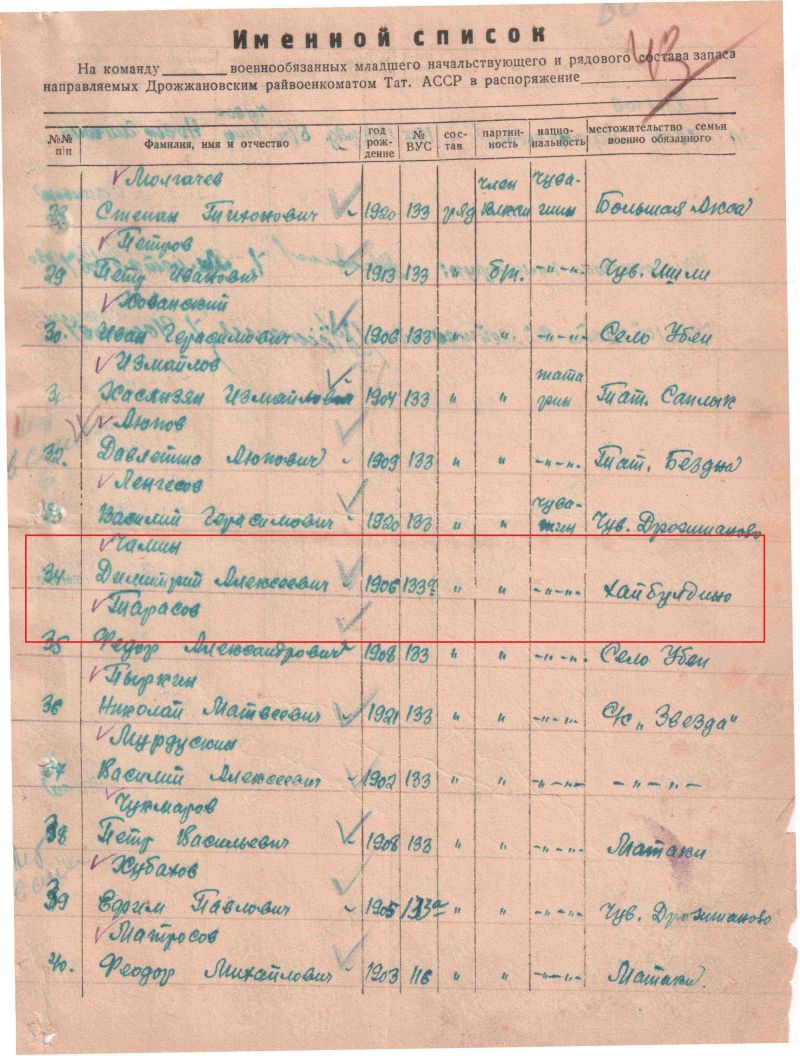 Именной список
43
На команду военнообязанных младшего начальствующего и рядового состава запаса
направляемых Дрожжановским райвоенкоматом Тат. АССР в распоряжение
№№ п/п Фамилия, имя и отчество год рож-дение № ВУС сос-тав партий-ность нацио-нальность местожительство семьи военно обязанного
Молгачев член чува-
28 Степан Тихонович 1920 133 ряд ВЛКСМ шин Большая Акса
Петров
29 Петр Иванович 1913 133 " б/п. -"-"- Чув. Ишли
Хованский
30. Иван Герасимович 1906 133 " " -"-"- Село Убеи
Измайлов тата
31 Измайлович 1904 133 " " рин Тат. Саплык
Аюпов
32. Давлетша Аюпович 1909 133 " " -"-"- Тат. Бездна
Ленгесов чува-
33 Василий Герасимович 1920 133 " " шин Чув. Дрожжаново
Чамин
34 Димитрий Алексеевич 1906 133а " " -"-"- Хайбулдино
Тарасов
35 Федор Александрович 1908 133 " " -"-"- Село Убеи
Пыркин
36 Николай Матвеевич 1921 133 " " -"-"- с/к "Звезда"
Мурдускин
37 Василий Алексеевич 1902 133 " " -"-"- -"-"-
Чукмаров
38 Петр Васильевич 1908 133 " " -"-"- Матаки
Хубахов
39 Ефрим Павлович 1905 133а " " -"-"- Чув. Дрожжаново
Матросов
40. Феодор Михайлович 1903 116 " " -"-"- Матаки.